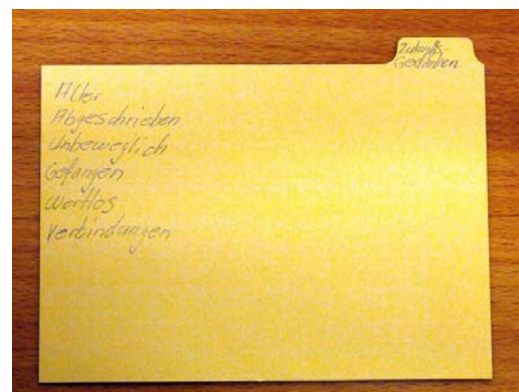 Zukunfts-
Gedanken
Alter
Abgeschrieben
Unbeweglich
Gefangen
Wertlos
Verbindungen